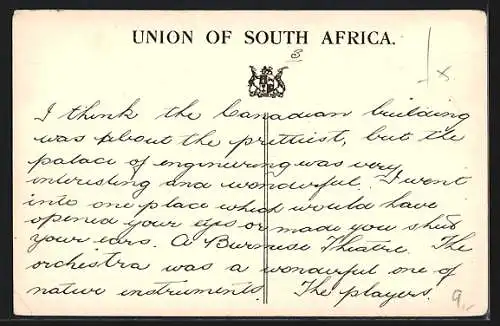 UNION OF SOUTH AFRICA.
3
x.
I think the Canadian building
was about the prettiest, but the
palace of engineering was very
interesting and wonderful. I went
into one place which would have
opened your eyes or made you shut
your ears. A Burmese Theatre. The
orchestra was a wonderful one of
native instruments. The players.
9.-